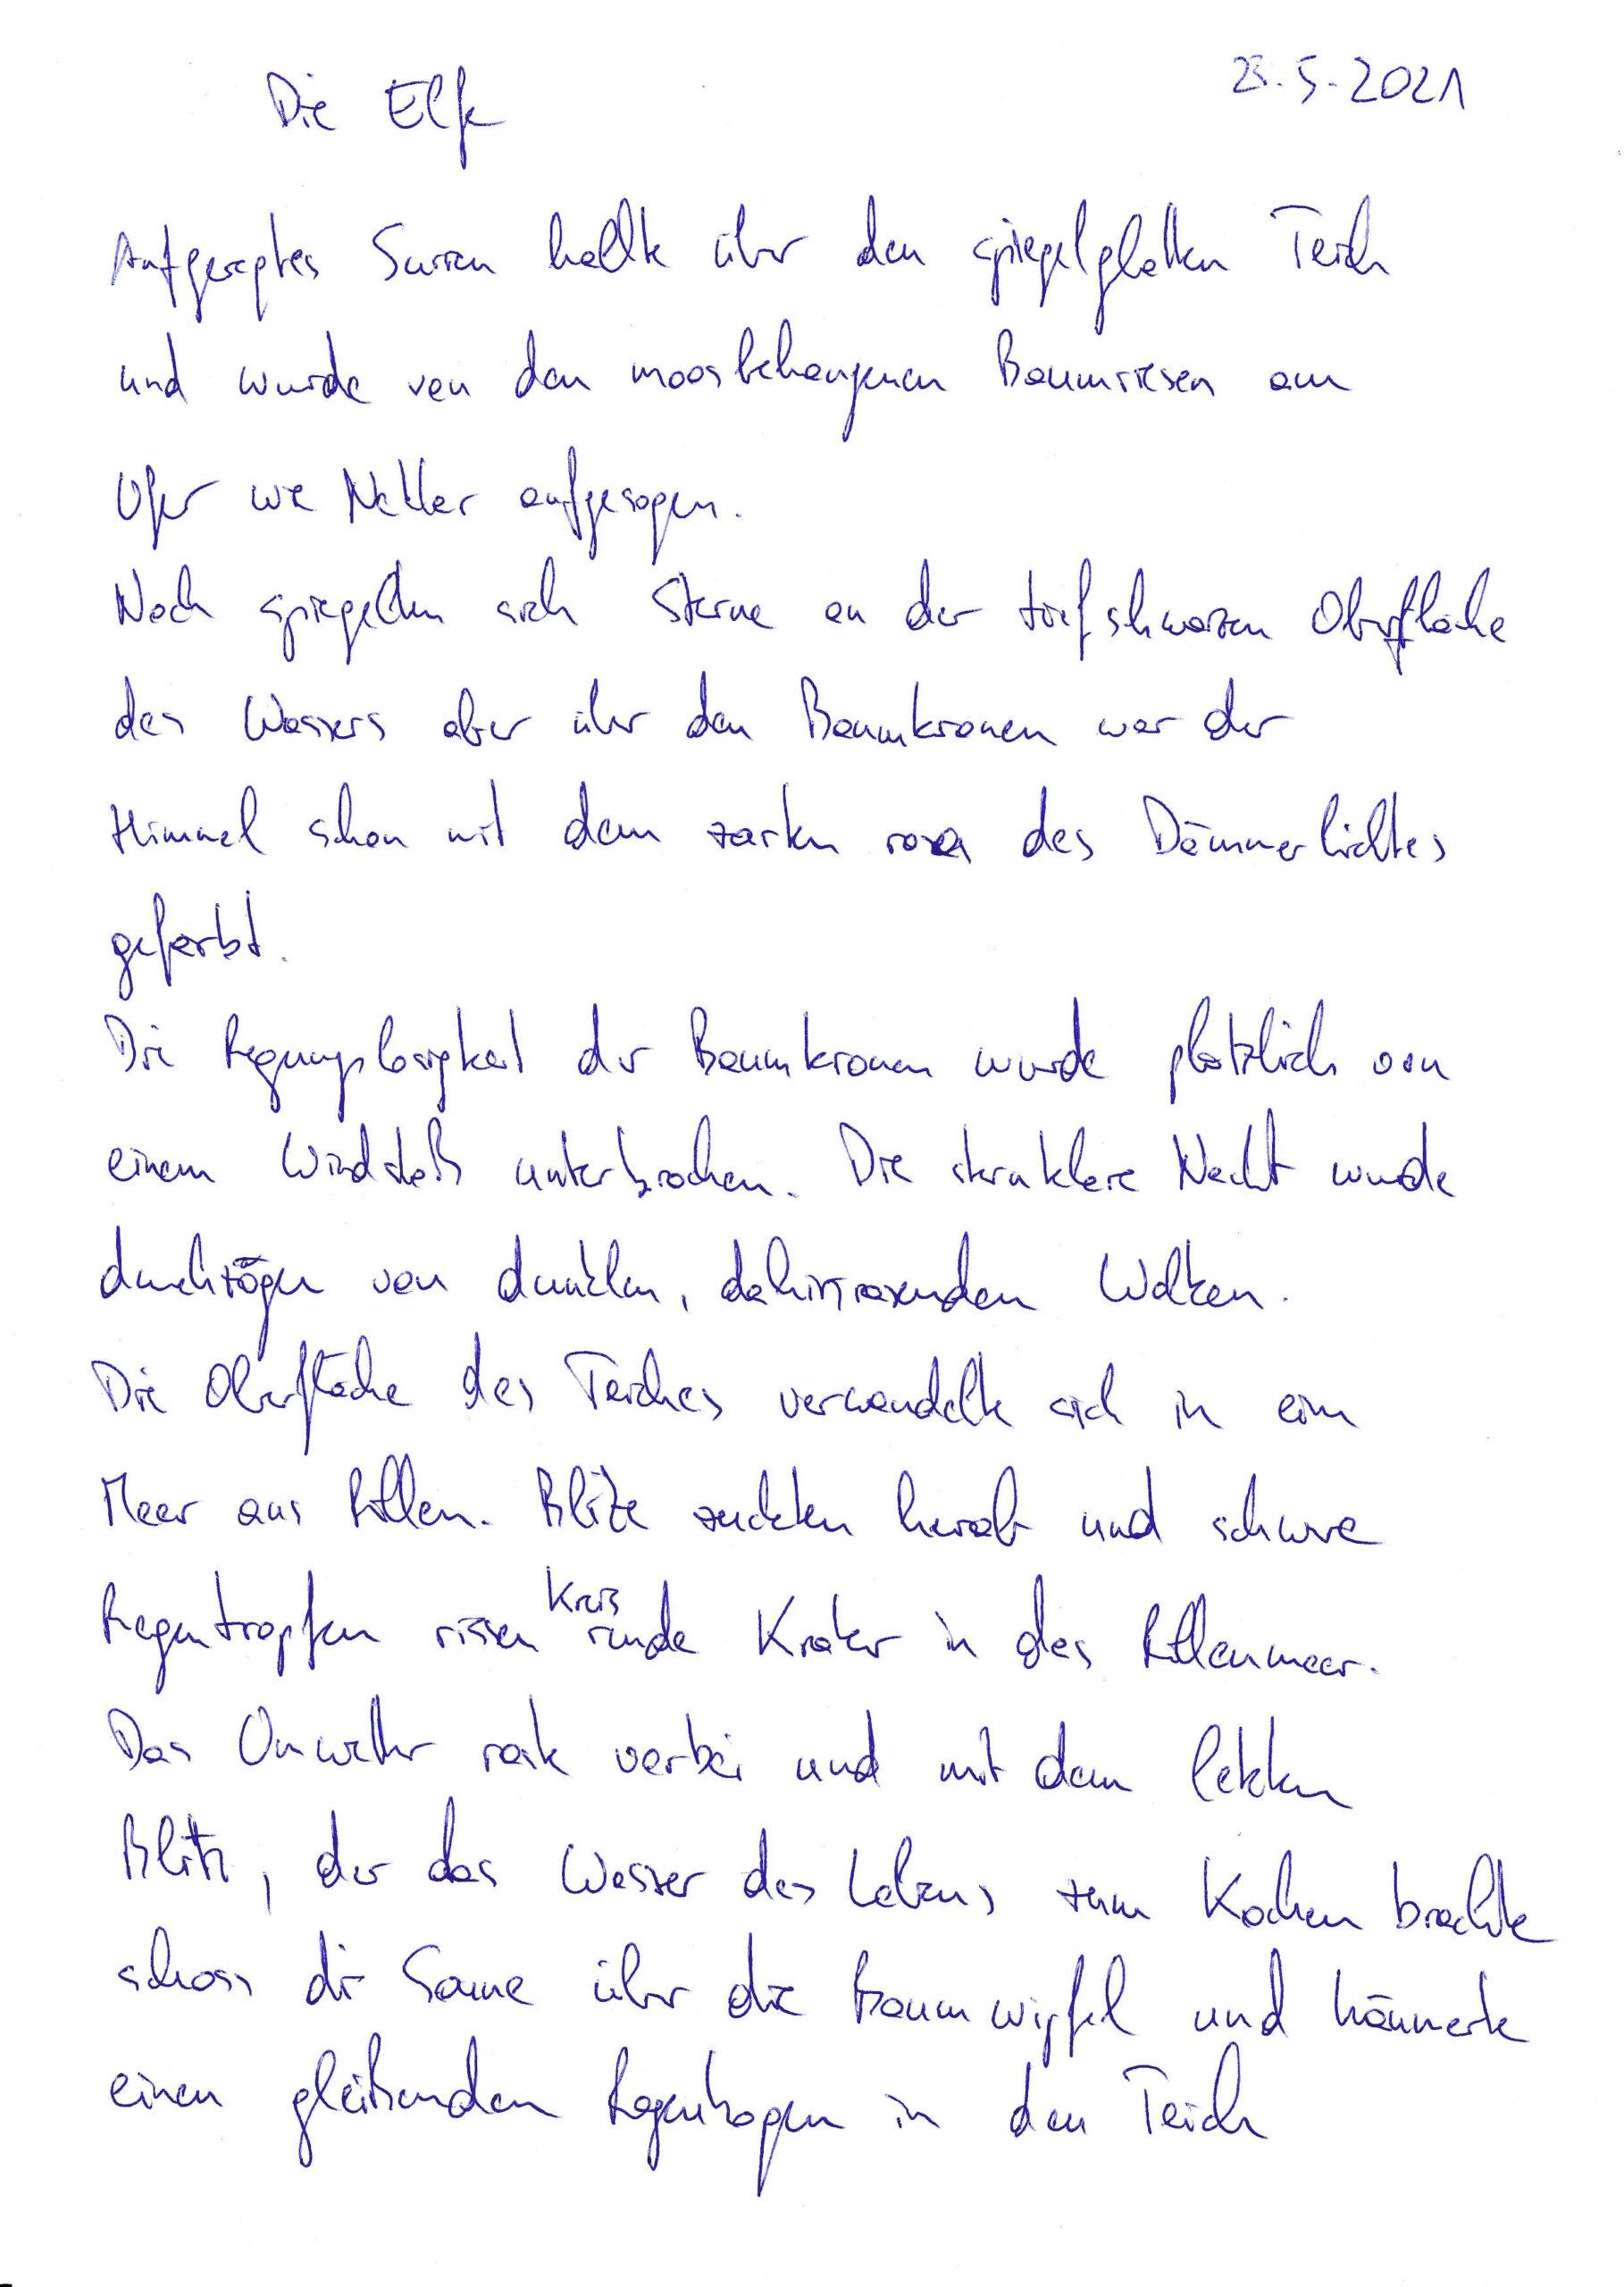 Die Elfe 23.5.2021
Aufgeregtes Surren hallte über den spiegelglatten Teich
und wurde von den moosbehangenen Baumriesen am
Ufer wie Nektar aufgesogen.
Noch spiegelten sich Sterne an der tiefschwarzen Oberfläche
des Wassers aber über den Baumkronen war der
Himmel schon mit dem zarten rosa des Dämmerlichtes
gefärbt.
Die Regungslosigkeit der Baumkronen wurde plötzlich von
einem Windstoß unterbrochen. Die sternklare Nacht wurde
durchzogen von dunklen, dahinrasenden Wolken.
Die Oberfläche des Teiches verwandelte sich in ein
Meer aus Rillen. Blitze zuckten herab und schwere
Regentropfen rissen Kreis runde Krater in das Rillenmeer.
Das Unwetter raste vorbei und mit dem letzten
Blitz, der das Wasser des Lebens zum Kochen brachte
schoss die Sonne über die Baumwipfel und hämmerte
einen gleißenden Regenbogen in den Teich